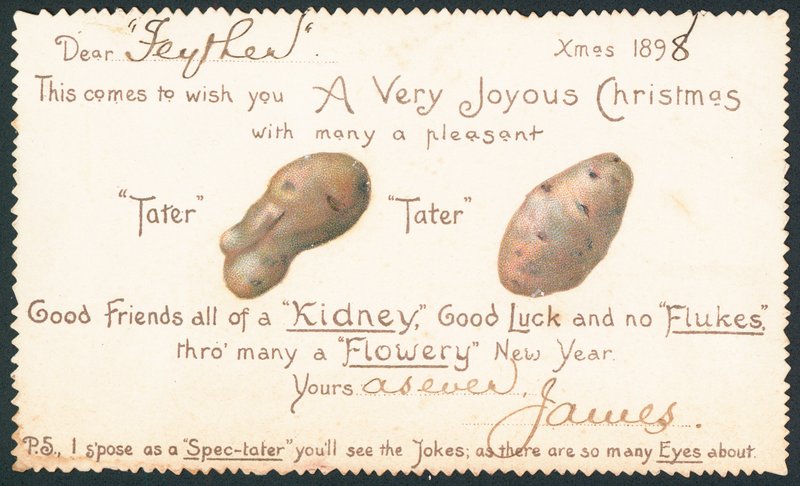 Dear "Feyther".
Xmas 1898
This comes to wish you A Very Joyous Christmas
with many a pleasant
"Tater" "Tater"
Good Friends all of a "Kidney," Good Luck and no "Flukes",
thro' many a "Flowery" New Year.
Yours as ever,
James.
P.S., I s'pose as a "Spec-tater" you'll see the Jokes; as there are so many Eyes about.